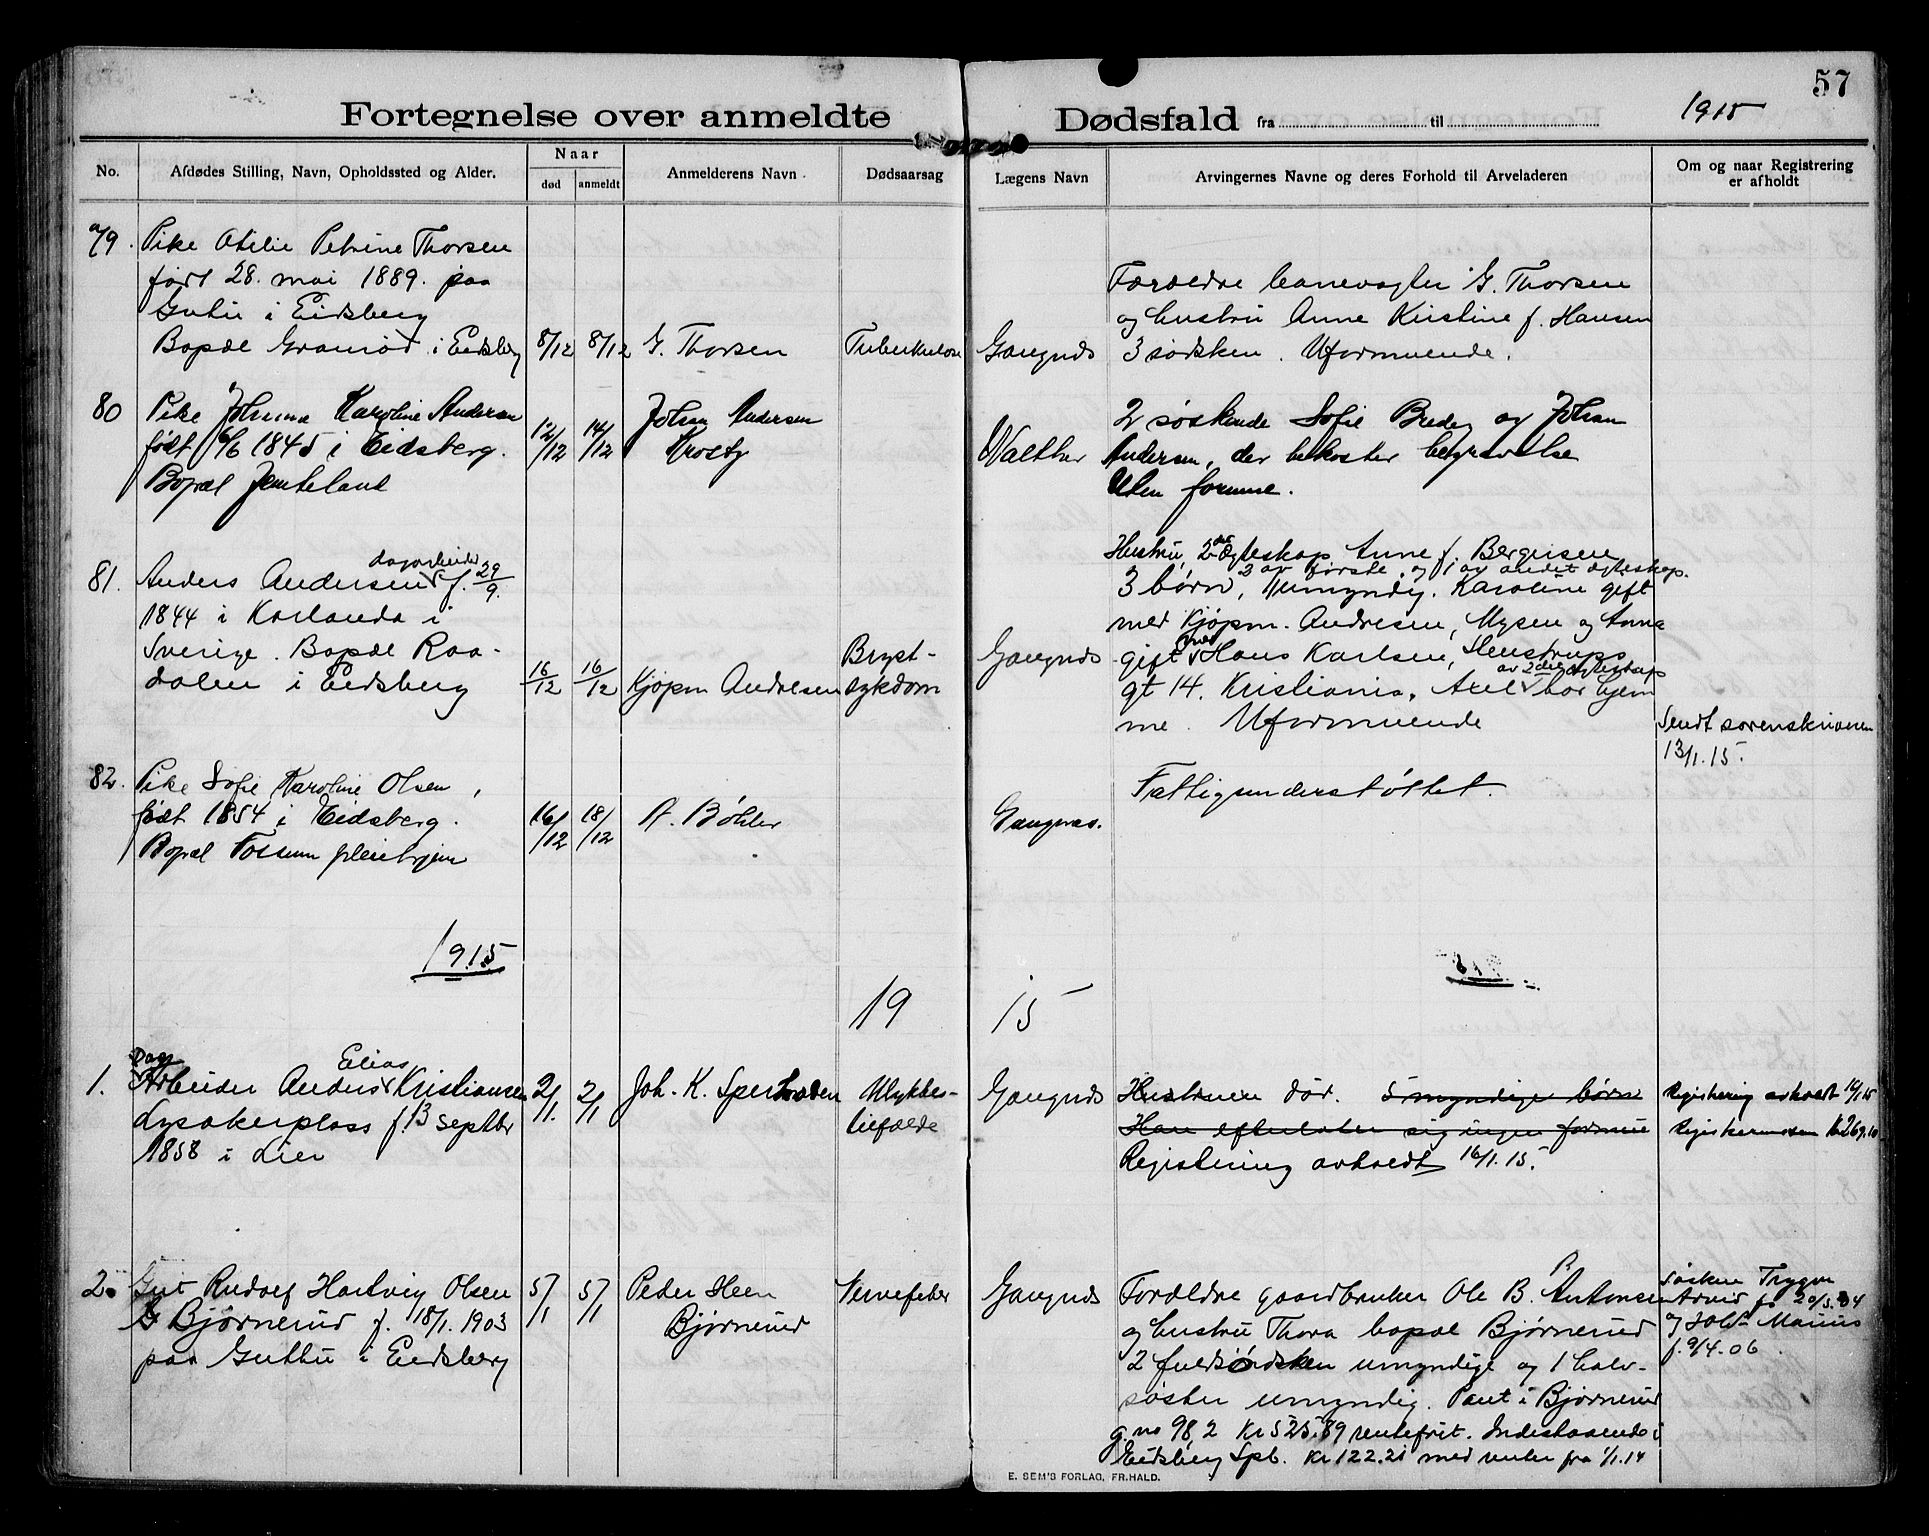 57
Fortegnelse over anmeldte Dødsfald fra til 1915
No.
Afdødes Stilling, Navn, Opholdssted og Alder.
Naar
død
anmeldt
Anmelderens Navn
Dødsaarsag
Lægens Navn
Arvingernes Navne og deres Forhold til Arveladeren
Om og naar Registrering
er afholdt
79. Pike Otilie Petrine Thorsen
født 28. mai 1889. paa
Gutu i Eidsberg
Bopæl Gramrød i Eidsberg
8/12
8/12
G. Thorsen
Tuberkulose
Gangnæs
Forældre banevogter G. Thorsen
og hustru Anne Kristine f. Hansen
3 sødsken. Uformuende.
80 Pike Johanna Karoline Andersen
født 6/6 1845 i Eidsberg.
Bopæl Jenteland
12/12
14/12
Johan Andersen
Krosby
Walther
2 søskende Sofie Bredey og Johan
Andersen, der bekoster begravelse
Uden formue.
81. Anders Andersen dagarbeider f. 29/9.
1844 i Karlanda i
Sverige. Bopæl Raa-
dalen i Eidsberg
16/12
16/12
Kjøpm Andresen
Bryst-
sykdom
Gangnæs
Hustru, 2det Ægteskap Anne f. Bergersen
2 av første og 1 av andet ægteskap.
3 børn, 1 umyndig. Karoline gift
med Kjøpm. Andresen, Mysen og Anna
gift med Hans Karlsen, Stenstrups
av 2det ægteskap
gt 14. Kristiania. Axel bor hjem
me. Uformuende
Sendt sorenskriveren
13/1.15.
82. Pike Sofie Karoline Olsen,
født 1854 i Eidsberg.
Bopæl Fossum pleiehjem
16/12
18/12
A. Böhler
Gangnæs.
Fattigunderstøttet.
1915
19 15
1. Dags
Arbeider Anders Elias Kristiansen
Lysakerplass f. 13 septbr
1858 i Lier
2/1.
2/1
Joh. K. Sperstraden
Ulykkes-
tilfælde
Gangnæs
Hustruen død. 5 myndige børn
Han efterlater sig ingen formue
Registering avholdt 16/1.15.
Registering avholdt 16/1 15
Registermassen Kr 269.10
2. Gut Rudolf Hartvig Olsen
Bjørnerud f. 18/1. 1903
paa Guthu i Eidsberg
5/1
5/1
Peder Heen
Bjørnerud
Nervefeber
Gangnæs
Forældre gaardbruker Ole B. Antonsen
og hustru Thora bopæl Bjørnerud
2 fuldsødsken umyndige og 1 halv-
søster umyndig. Pant i Bjørnerud
g. no 98, 2 Kr 525.89 rentefrit. Indestaaende i
Eidsberg Spb. Kr 122.21 med renter fra 1/1.14
Søsken Trygve
Arvid f. 20/3.04
og Joh Marius
f. 9/4.06.
E. SEM'S FORLAG, FR.HALD.